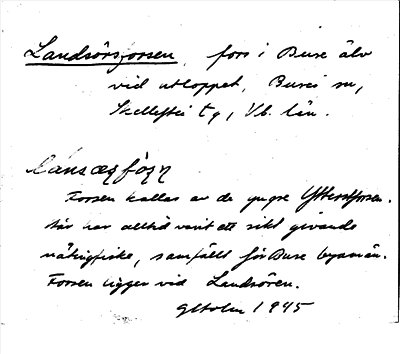 Landsörsforsen, fors i Bure älv
vid utloppet, Bureå sn,
Skellefteå tg, Vb. län.
lansœʂfoʂn̩
Forsen kallas av de yngre Ytterstforsen.
Här har alltid varit ett rikt givande
nätingfiske, samfällt för Bure byamän.
Forsen ligger vid Landsören.
GHolm 1945